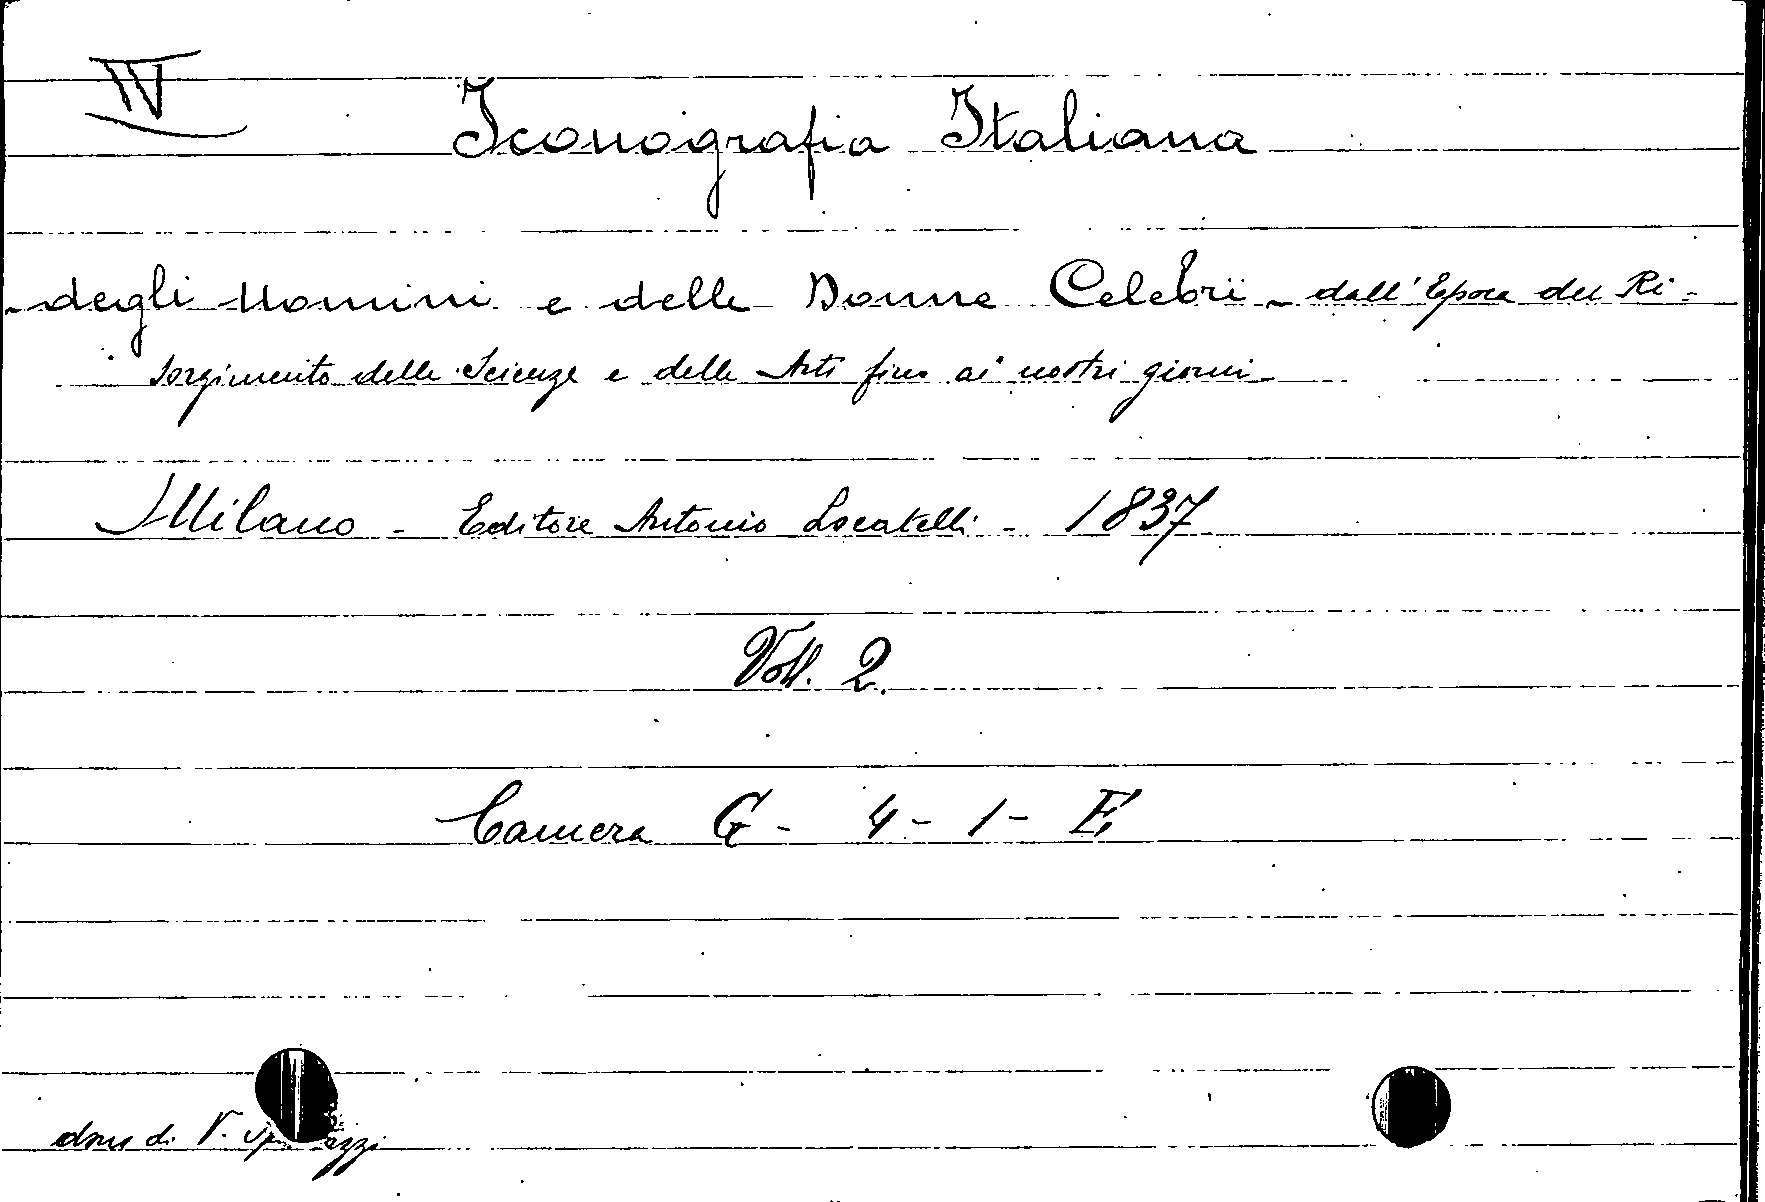 IV
Iconografia Italiana
degli Uomini e delle Donne Celebri - dall'Epoca del Ri=
sorgimento delle Scienze e delle Arti fino ai nostri giorni
Milano - Editore Antonio Locatelli - 1837
Voll. 2.
Camera G - 4 - 1 - E
dono di V.